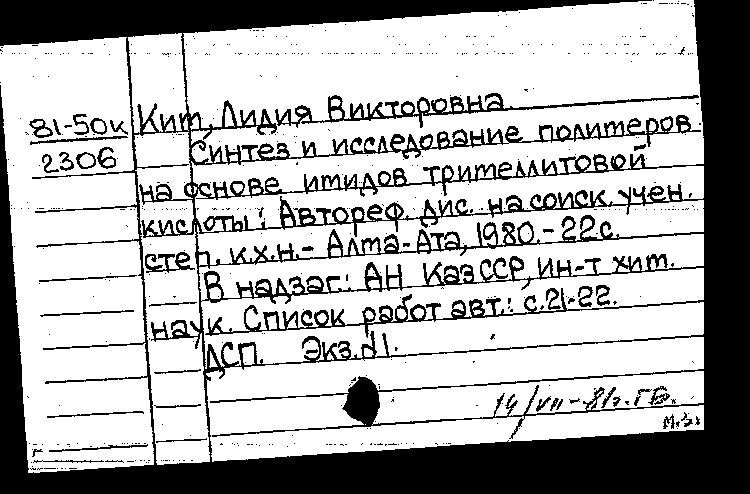 81-50к Кит, Лидия Викторовна.
2306 Синтез и исследование полимеров
на основе имидов тримеллитовой
кислоты: Автореф. дис. на соиск. учен.
степ. к.х.н.- Алма-Ата, 1980.-22с.
В надзаг.: АН КазССР, Ин-т хим.
наук. Список работ авт.: с.21-22.
ДСП. Экз.
14/VII-81г. ГБ.
М.З.